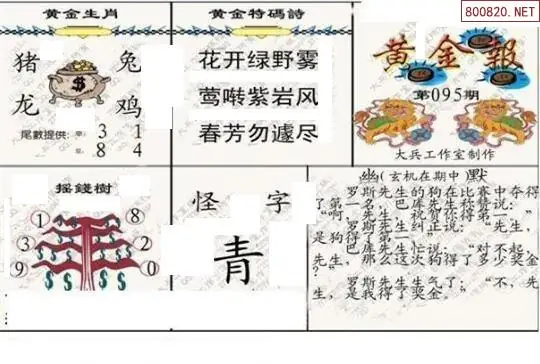 800820.NET
黄金生肖
猪 兔
龙 鸡
尾數提供: 3 1
8 4
黄金特碼詩
花开绿野雾
莺啭紫岩风
春芳勿遽尽
黄金報
第095期
大兵工作室制作
摇錢樹
1 8
3 2
9 0
怪字
青
幽(玄机在期中)默
罗斯先生的狗在比赛中夺得
了第一名，巴库先生称赞说：
“啊，先生，祝贺你得第一。”
罗斯先生纠正说：“先生，
是狗得了第一。”
巴库先生忙说：“对不起，
先生，那么这次狗得了多少奖金
？”
罗斯先生生气了，“不，先
生，是我得了奖金。